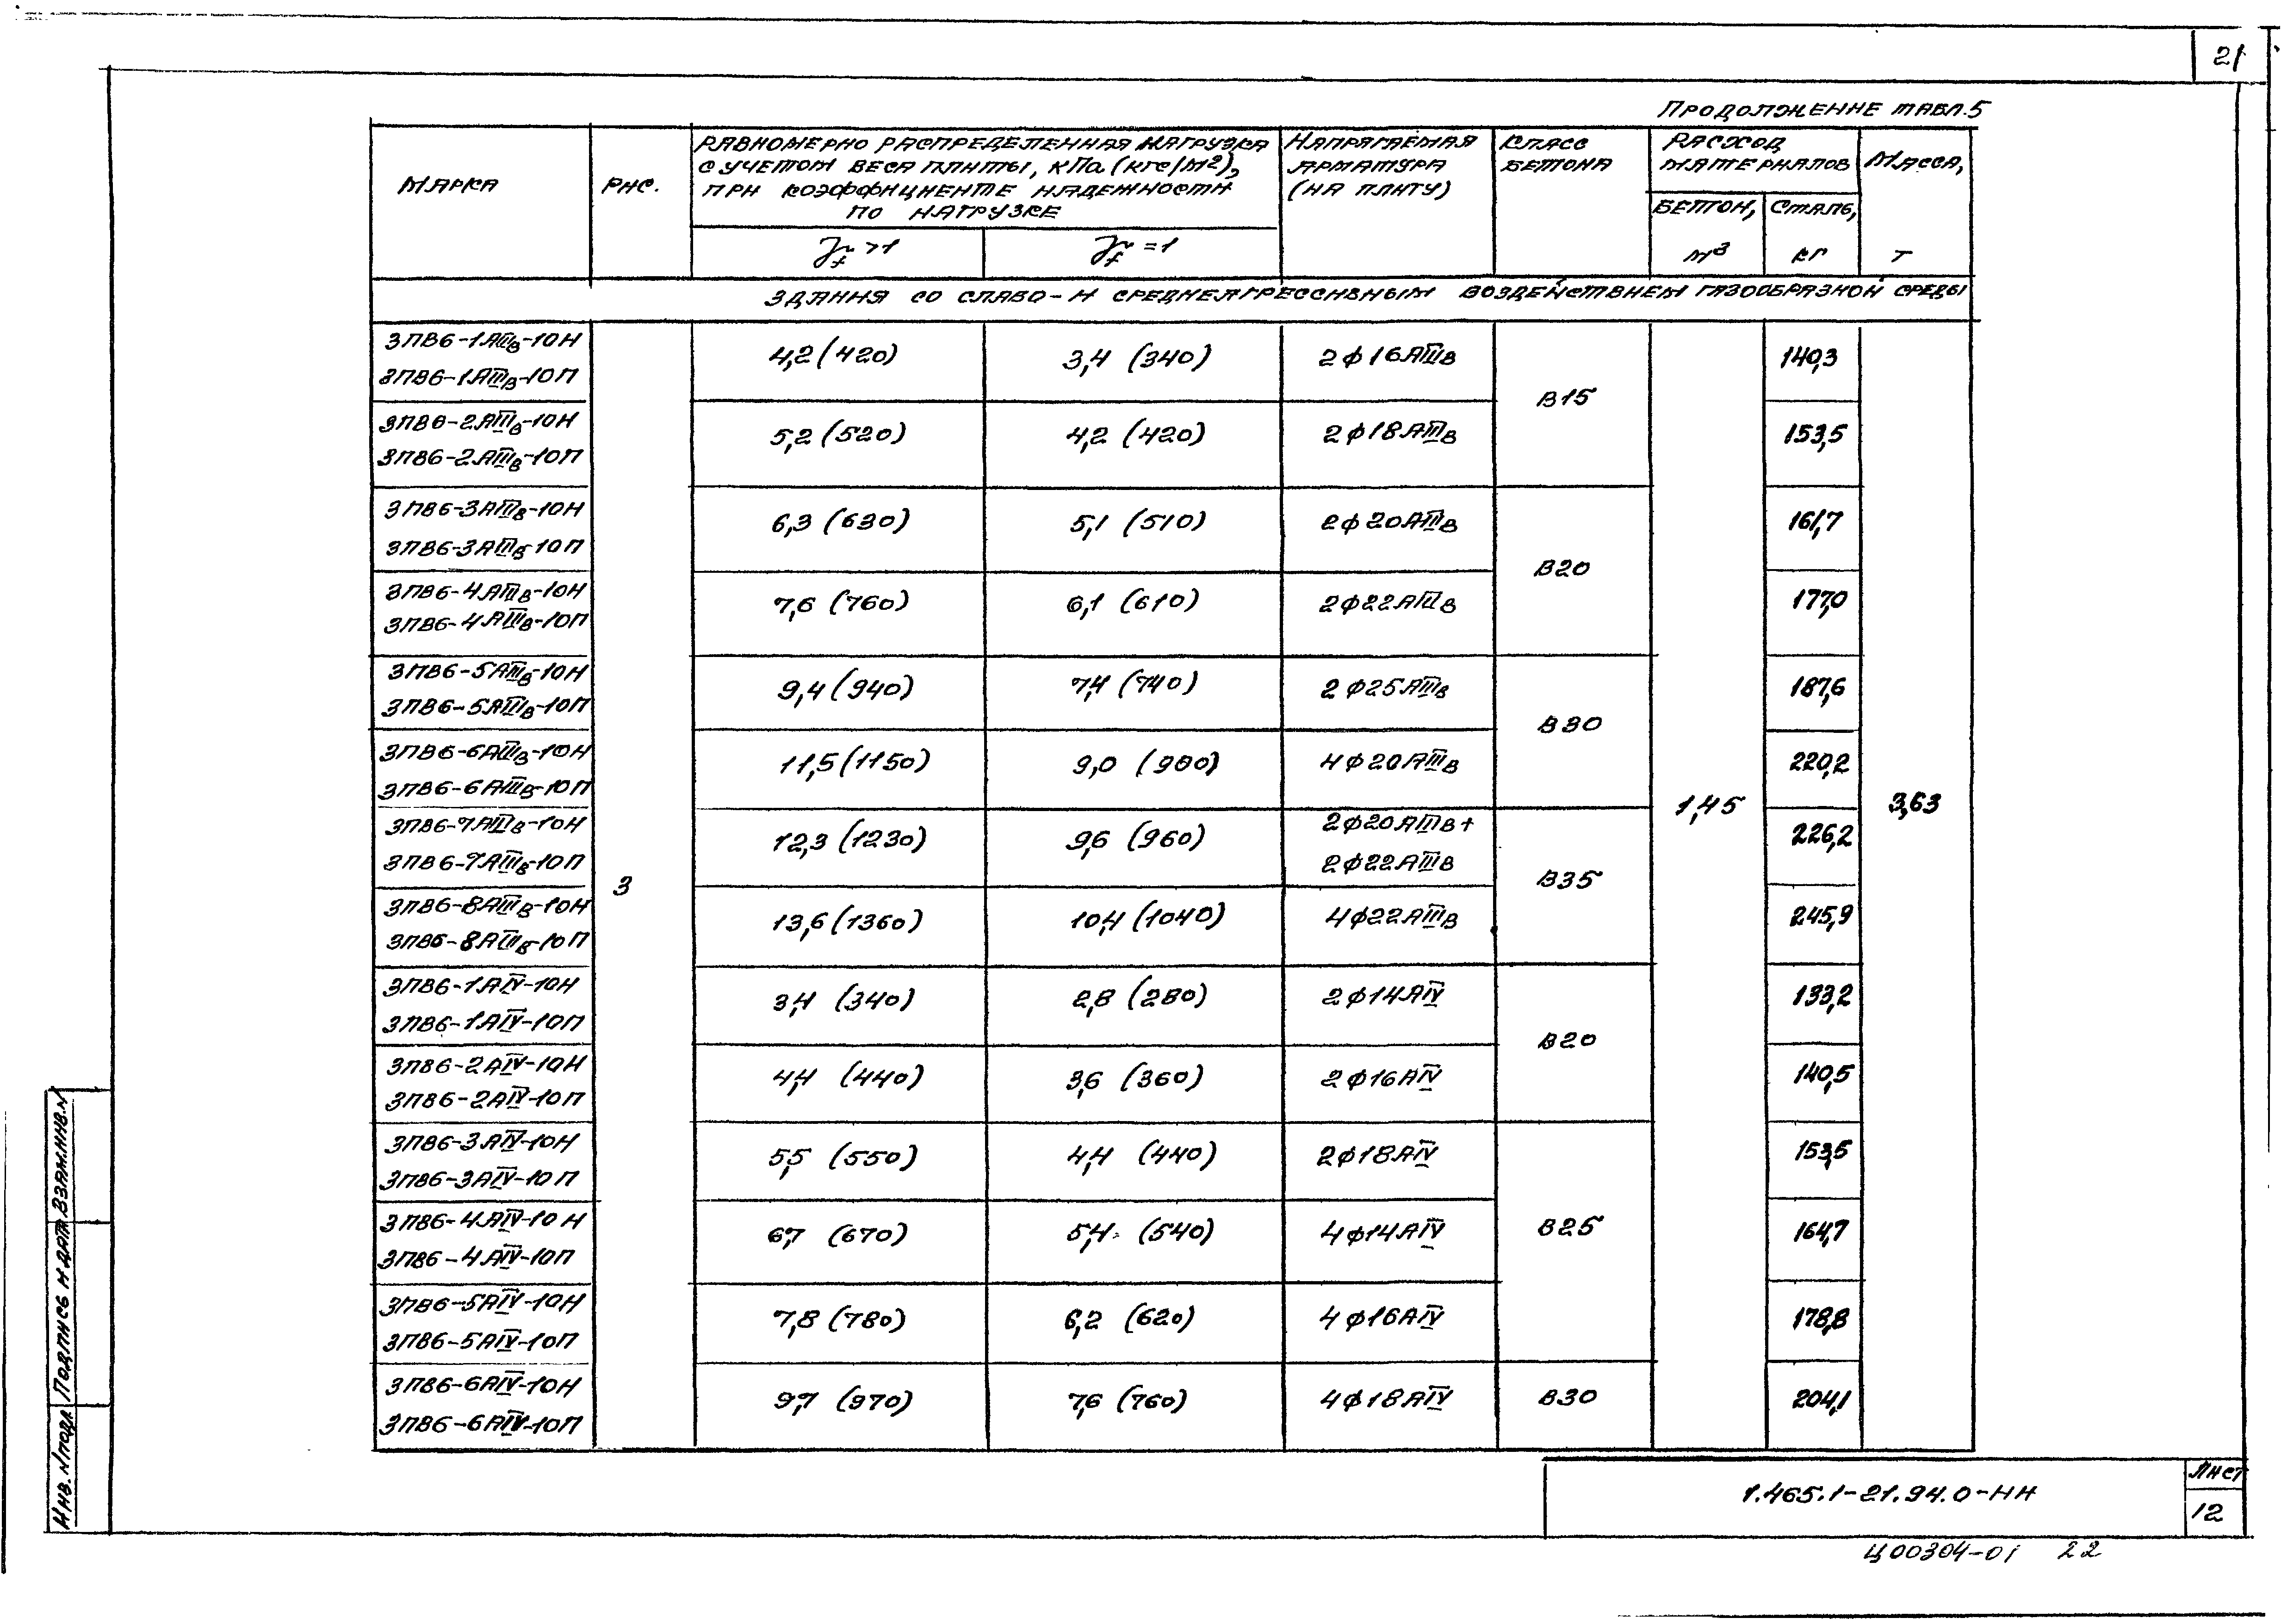 21
Продолжение табл.5
Марка
Рис.
Равномерно распределенная нагрузка
с учетом веса плиты, кПа (кгс/м²),
при коэффициенте надежности
по нагрузке
γf >1
γf =1
Напрягаемая
арматура
(на плиту)
Класс
бетона
Расход
материалов
Бетон,
м³
Сталь,
кг
Масса,
т
Здания со слабо- и среднеагрессивным воздействием газообразной среды
3ПВ6-1АIIIв-10Н
3ПВ6-1АIIIв-10П
4,2 (420)
3,4 (340)
2ф16АIIIв
В15
140,3
3ПВ6-2АIIIв-10Н
3ПВ6-2АIIIв-10П
5,2 (520)
4,2 (420)
2ф18АIIIв
153,5
3ПВ6-3АIIIв-10Н
3ПВ6-3АIIIв-10П
6,3 (630)
5,1 (510)
2ф20АIIIв
В20
161,7
3ПВ6-4АIIIв-10Н
3ПВ6-4АIIIв-10П
7,6 (760)
6,1 (610)
2ф22АIIIв
177,0
3ПВ6-5АIIIв-10Н
3ПВ6-5АIIIв-10П
9,4 (940)
7,4 (740)
2ф25АIIIв
В30
187,6
3ПВ6-6АIIIв-10Н
3ПВ6-6АIIIв-10П
11,5 (1150)
9,0 (900)
4ф20АIIIв
220,2
1,45
3,63
3ПВ6-7АIIIв-10Н
3ПВ6-7АIIIв-10П
3
12,3 (1230)
9,6 (960)
2ф20АIIIв+
2ф22АIIIв
В35
226,2
3ПВ6-8АIIIв-10Н
3ПВ6-8АIIIв-10П
13,6 (1360)
10,4 (1040)
4ф22АIIIв
245,9
3ПВ6-1АIV-10Н
3ПВ6-1АIV-10П
3,4 (340)
2,8 (280)
2ф14АIV
В20
133,2
3ПВ6-2АIV-10Н
3ПВ6-2АIV-10П
4,4 (440)
3,6 (360)
2ф16АIV
140,5
3ПВ6-3АIV-10Н
3ПВ6-3АIV-10П
5,5 (550)
4,4 (440)
2ф18АIV
В25
153,5
3ПВ6-4АIV-10Н
3ПВ6-4АIV-10П
6,7 (670)
5,4 (540)
4ф14АIV
164,7
3ПВ6-5АIV-10Н
3ПВ6-5АIV-10П
7,8 (780)
6,2 (620)
4ф16АIV
178,8
3ПВ6-6АIV-10Н
3ПВ6-6АIV-10П
9,7 (970)
7,6 (760)
4ф18АIV
В30
204,1
Инв. N подл
Подпись и дата
Взам.инв.N
1.465.1-21.94.0-НИ
Лист
12
Ц00304-01 22